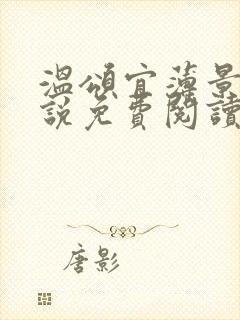 溫頌宜薄景
說免費閱讀
唐影